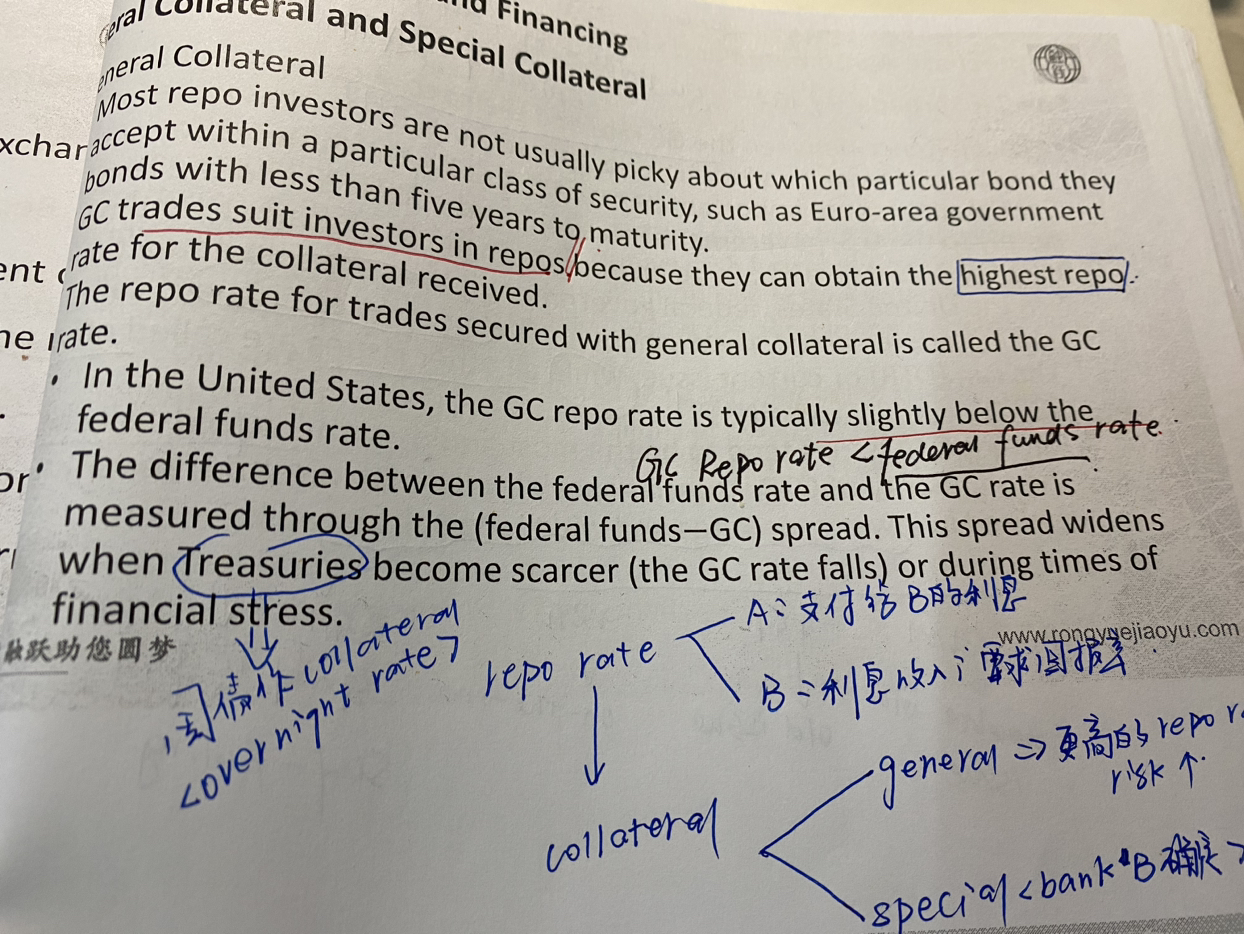 nd Financing
eral Collateral and Special Collateral
eneral Collateral
Most repo investors are not usually picky about which particular bond they
accept within a particular class of security, such as Euro-area government
bonds with less than five years to maturity.
GC trades suit investors in repos because they can obtain the highest repo
rate for the collateral received.
The repo rate for trades secured with general collateral is called the GC
rate.
• In the United States, the GC repo rate is typically slightly below the
federal funds rate.
GC Repo rate < federal funds rate
• The difference between the federal funds rate and the GC rate is
measured through the (federal funds—GC) spread. This spread widens
when Treasuries become scarcer (the GC rate falls) or during times of
financial stress.
融跃助您圆梦
www.rongyuejiaoyu.com
国债作 collateral
<overnight rate>
repo rate
A: 支付给B的利息
B: 利息收入; 要求回报率
collateral
general => 更高的 repo r
risk ↑
special <bank B
xchar